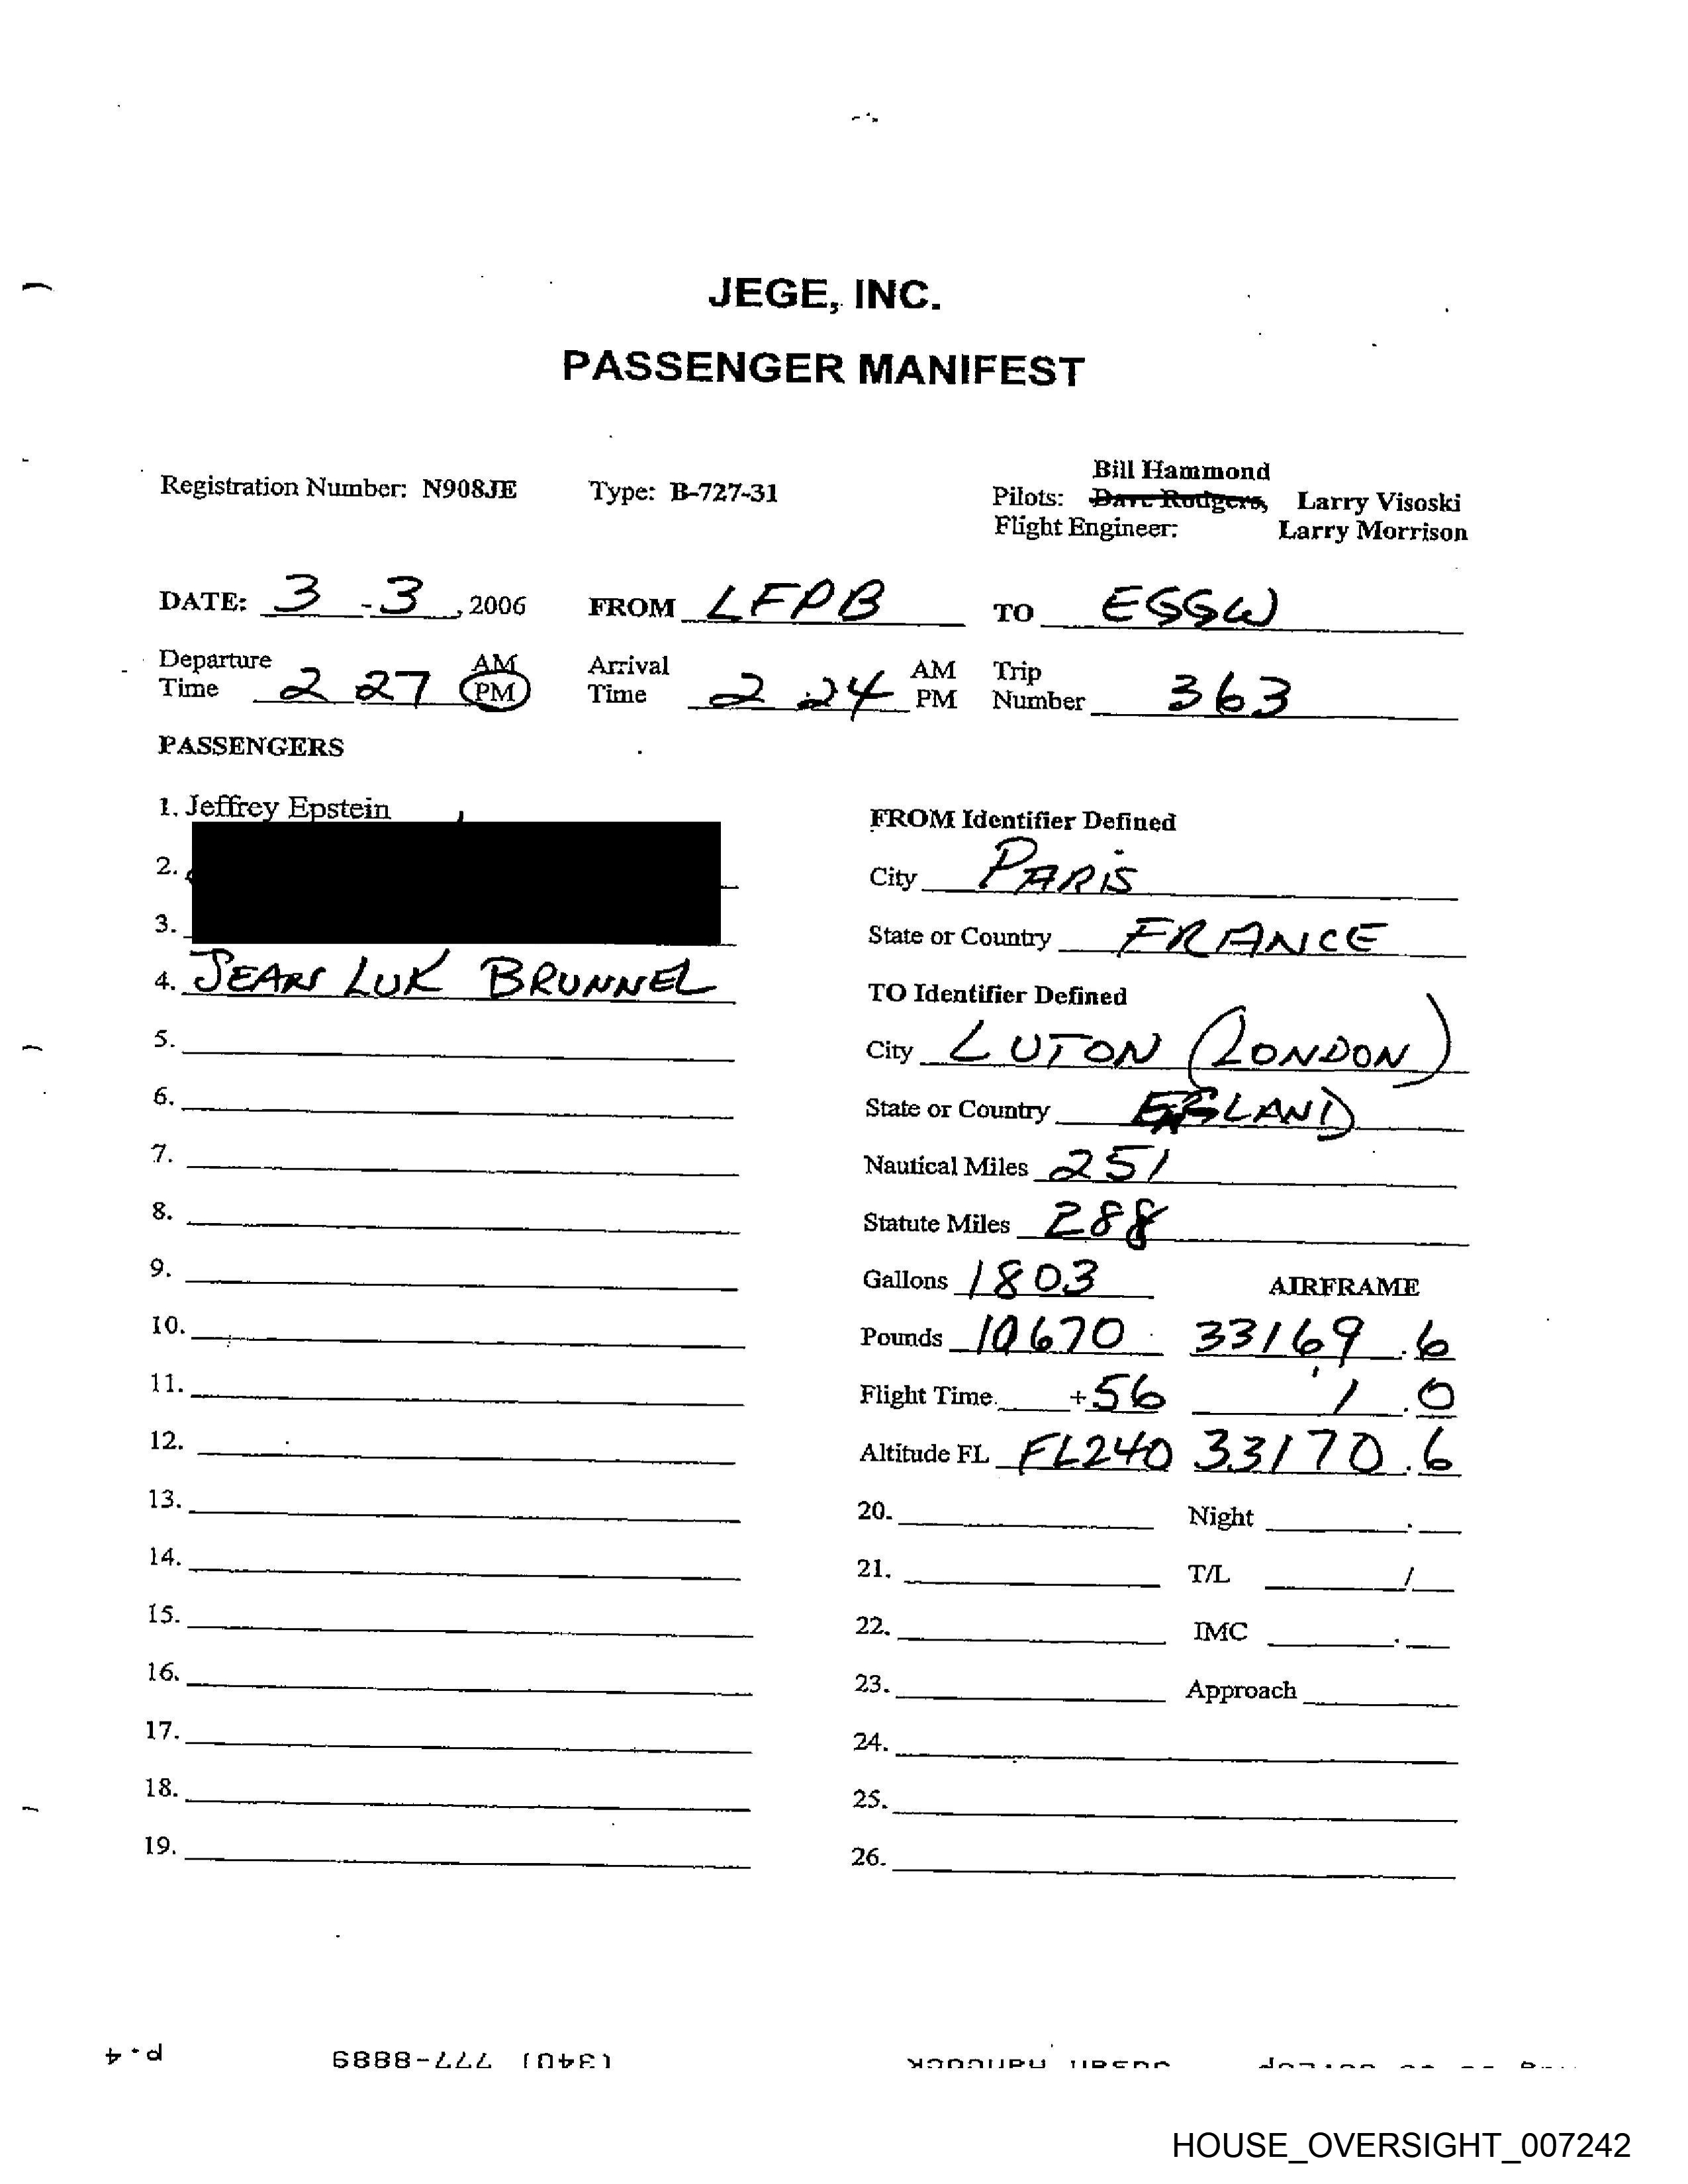 JEGE, INC.
PASSENGER MANIFEST
Bill Hammond
Registration Number: N908JE Type: B-727-31 Pilots: Dave Rodgers, Larry Visoski
Flight Engineer: Larry Morrison
DATE: 3 - 3, 2006 FROM LFPB TO EGGW
Departure Time 2 27 AM PM Arrival Time 2 24 AM PM Trip Number 363
PASSENGERS
1. Jeffrey Epstein
2.
3.
4. JEAN LUK BRUNNEL
5.
6.
7.
8.
9.
10.
11.
12.
13.
14.
15.
16.
17.
18.
19.
FROM Identifier Defined
City PARIS
State or Country FRANCE
TO Identifier Defined
City LUTON (LONDON)
State or Country ENGLAND
Nautical Miles 251
Statute Miles 288
Gallons 1803 AIRFRAME
Pounds 10670 33169.6
Flight Time +56 1.0
Altitude FL FL240 33170.6
20. Night .
21. T/L /
22. IMC .
23. Approach
24.
25.
26.
Susan Hancock (340) 777-8889 p.4
HOUSE_OVERSIGHT_007242